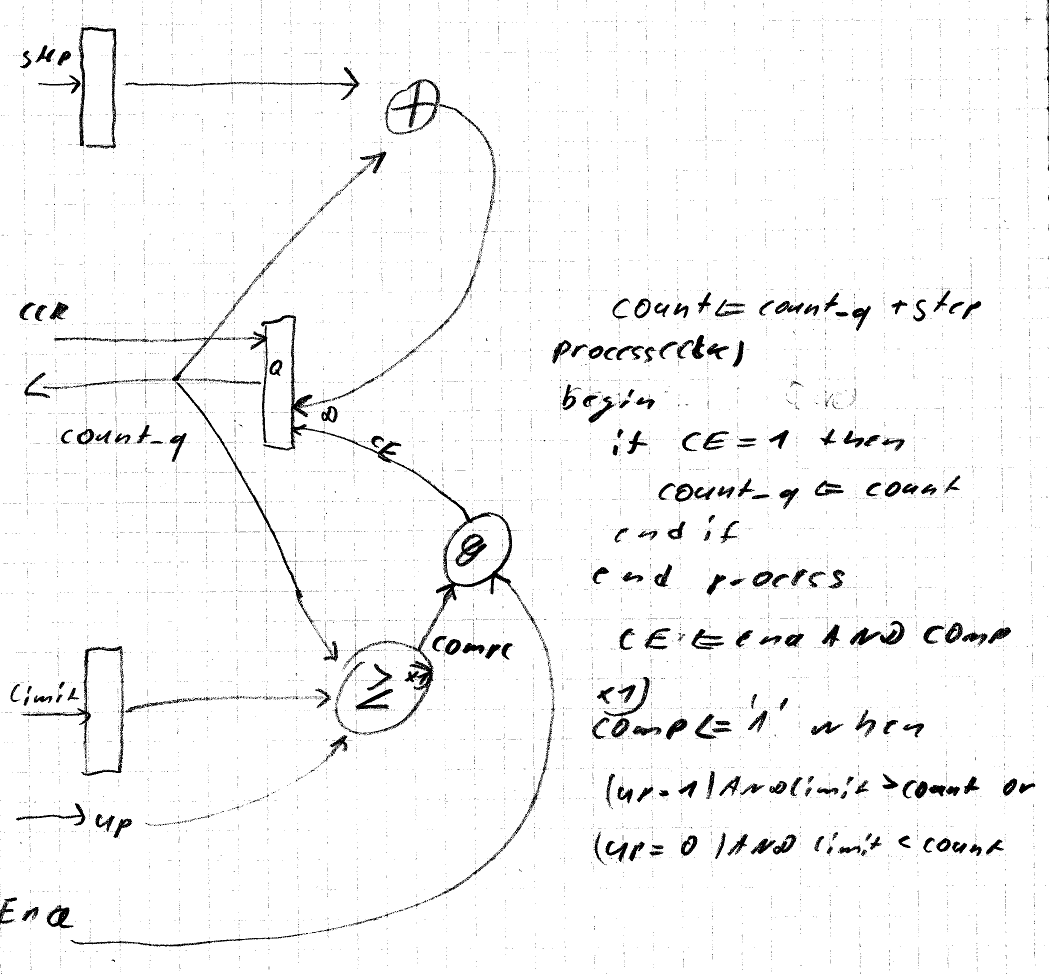 step
+
CLR
Q
D
count_q
CE
&
Compc
≥
x1)
limit
up
Ena
count <= count_q + step
process(clk)
begin
if CE = 1 then
count_q <= count
end if
end process
CE <= ena AND comp
x1)
comp <= '1' when
(up = 1) AND limit > count or
(up = 0) AND limit < count